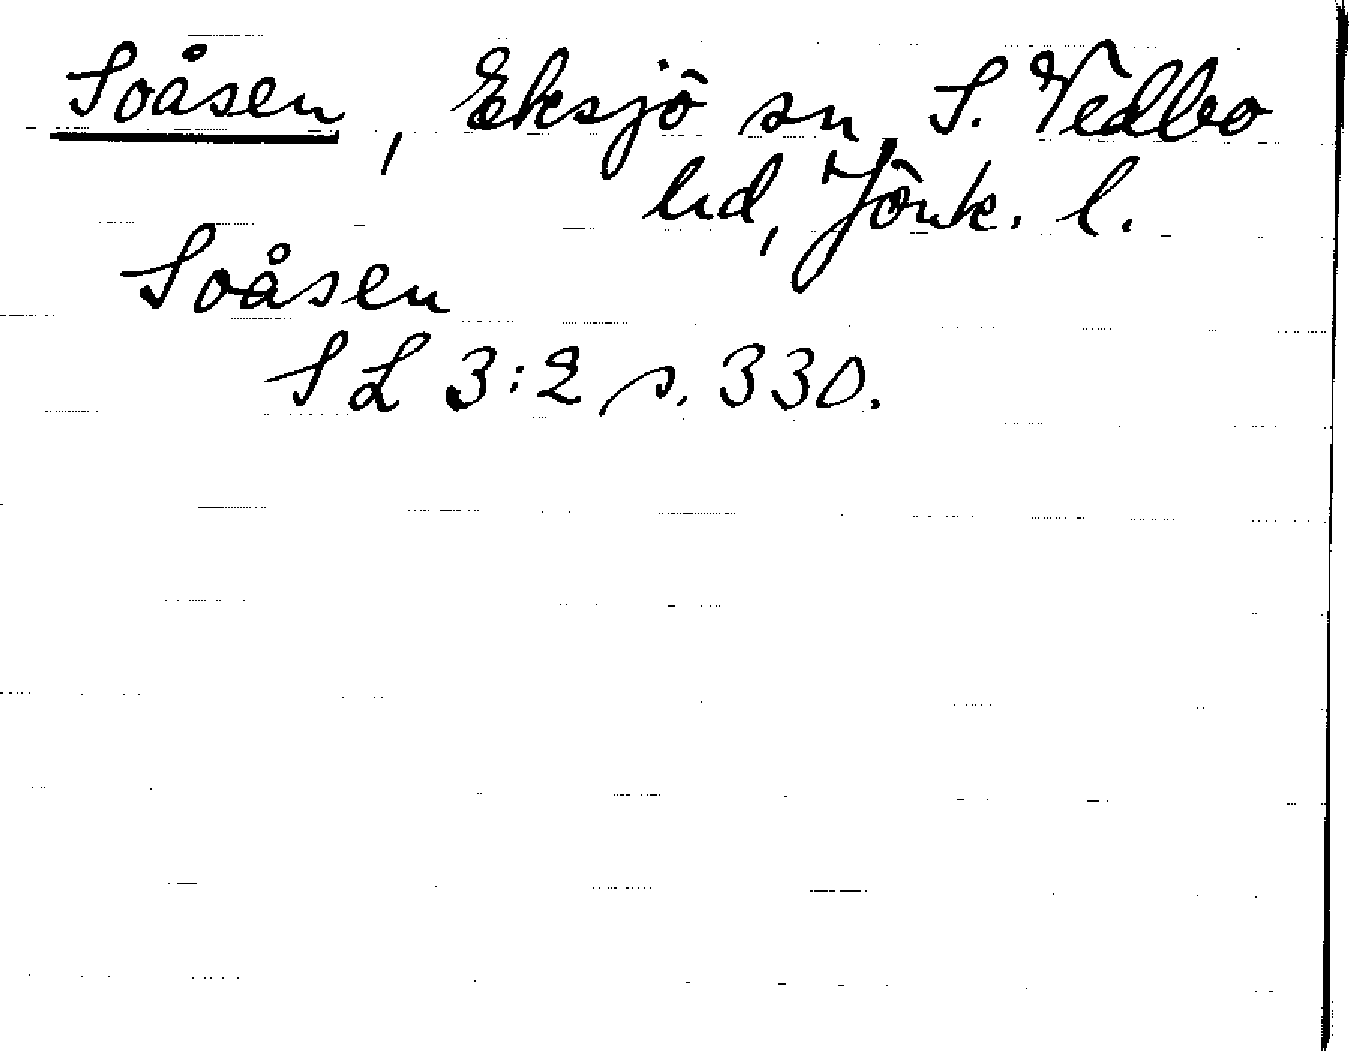 Soåsen, Eksjö sn, S. Vedbo
hd, Jönk. l.
Soåsen
SL 3:2 s. 330.